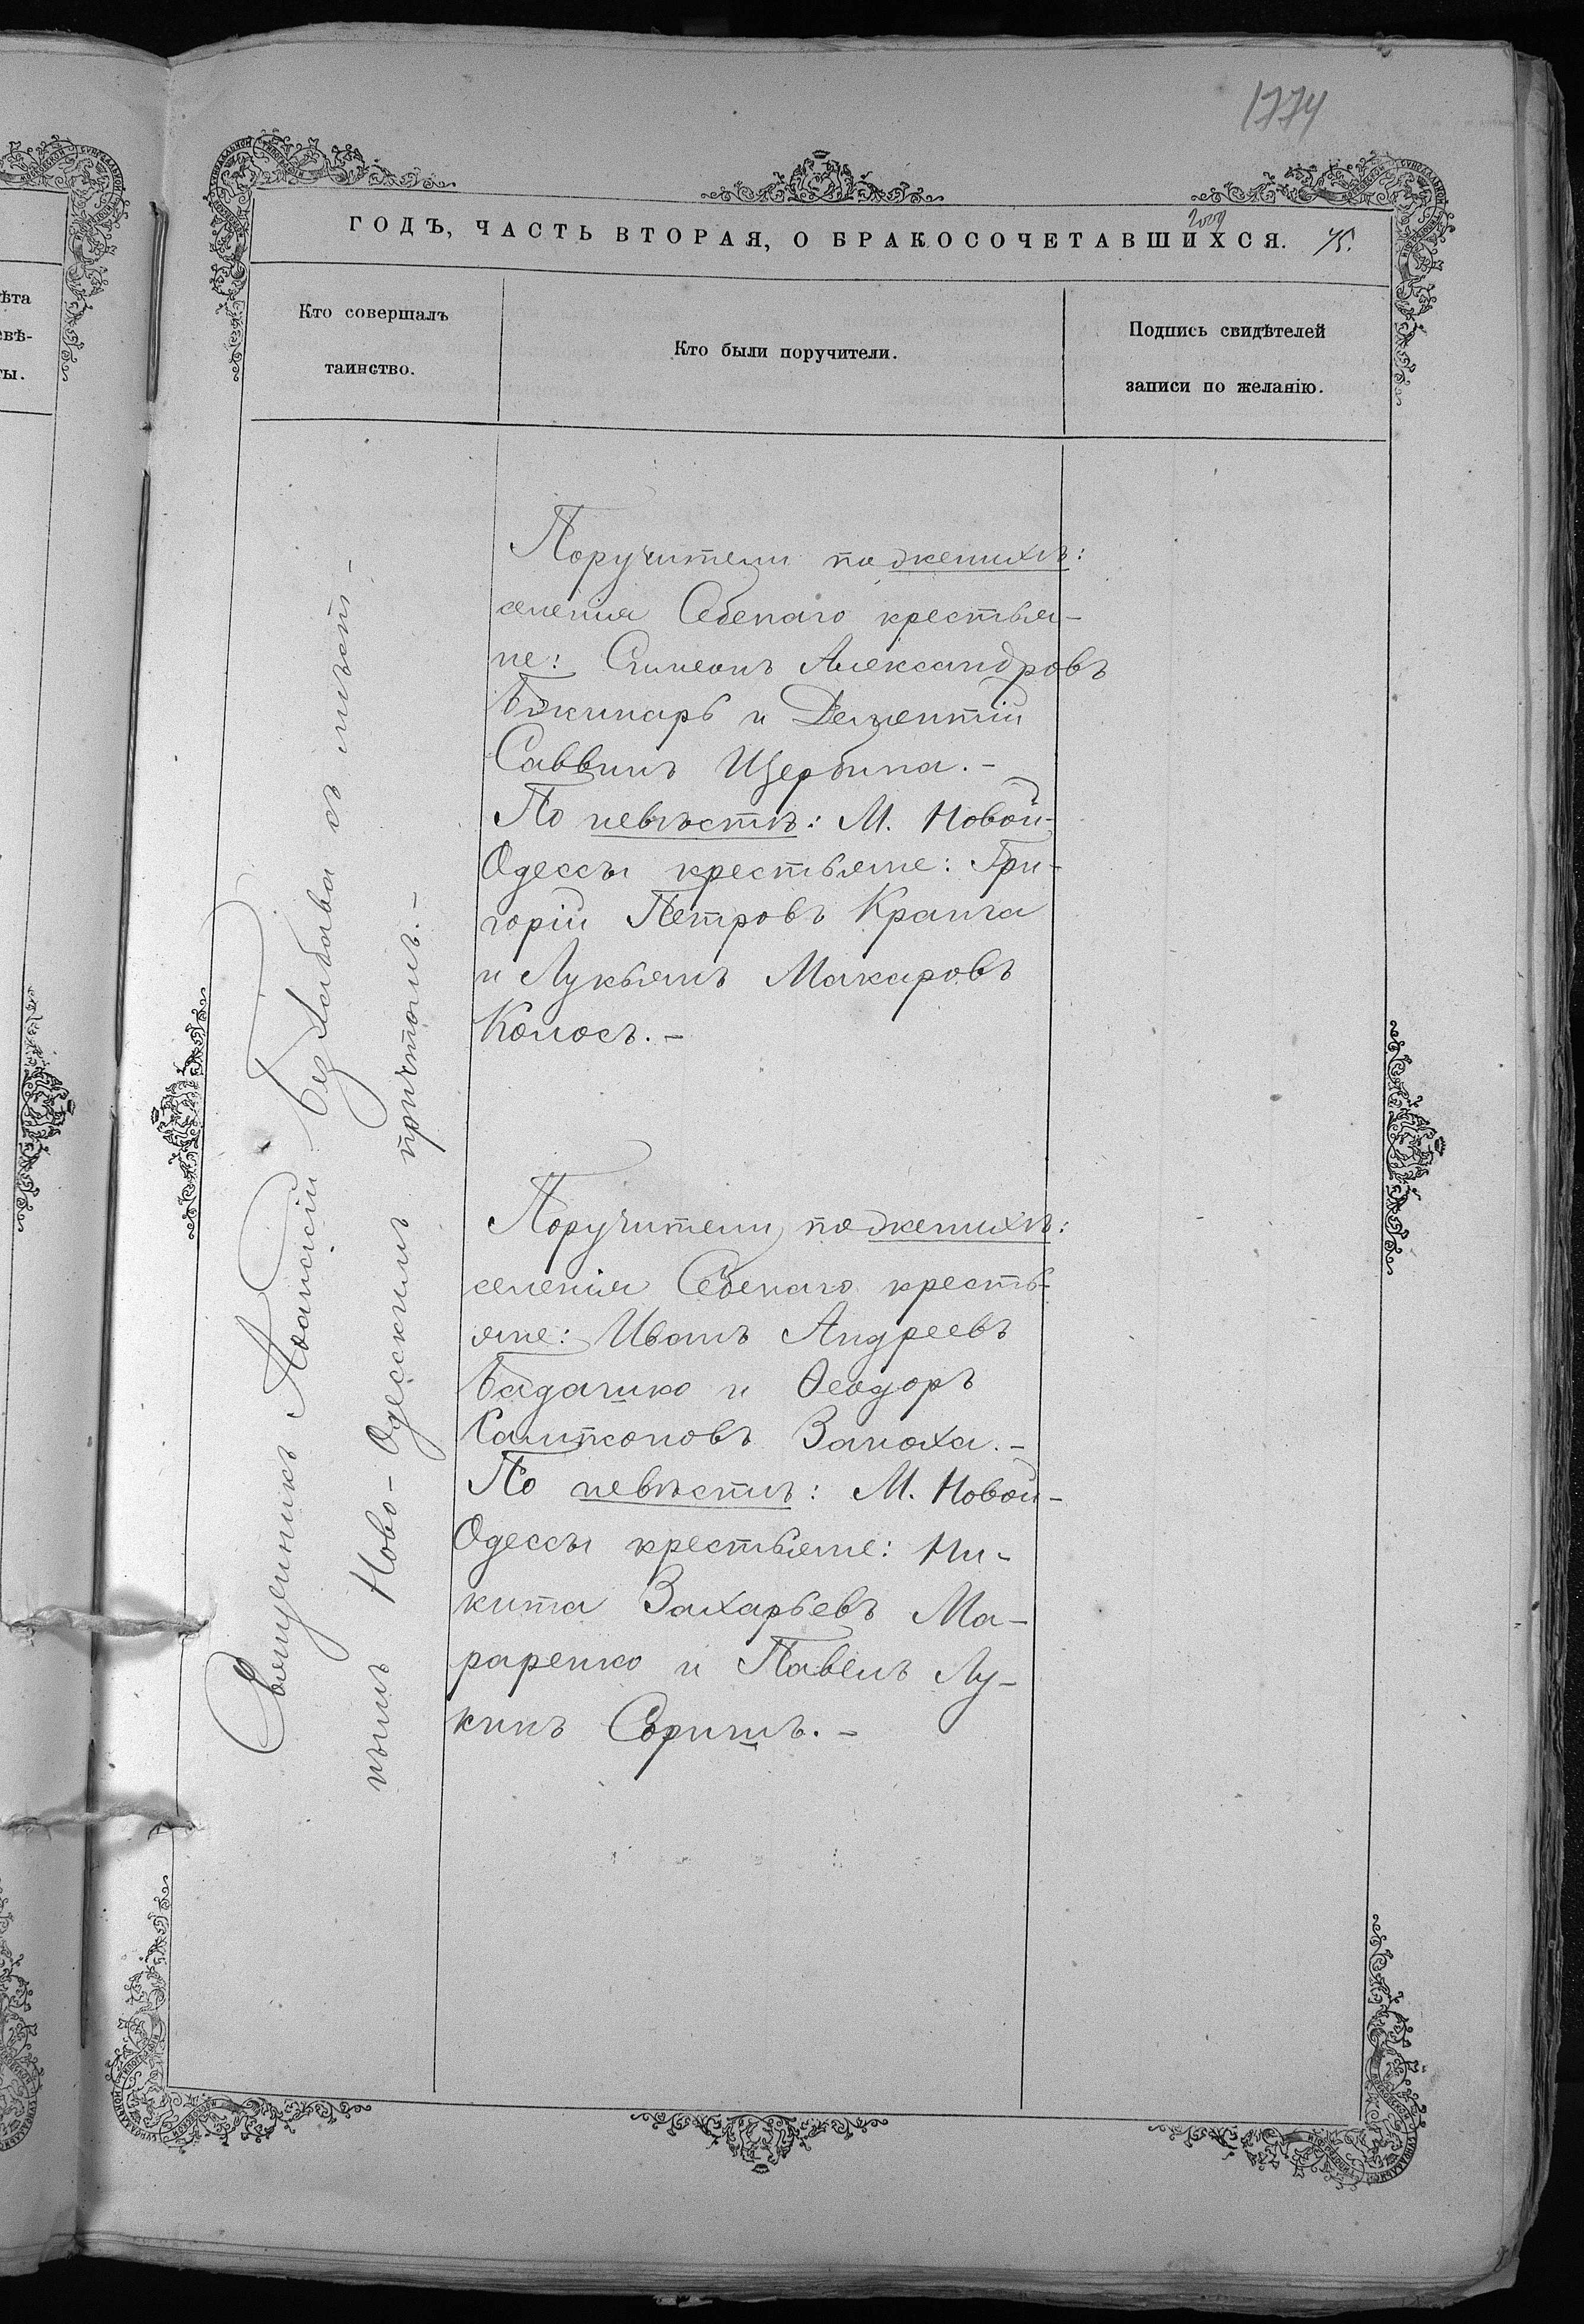 1774
2009
ГОДЪ, ЧАСТЬ ВТОРАЯ, О БРАКОСОЧЕТАВШИХСЯ. 75.
ѣта
евѣ-
ты.
Кто совершалъ
таинство.
Кто были поручители.
Подпись свидѣтелей
записи по желанію.
Священникъ Аѳанасій съ мѣст-
нымъ Ново-Одесскимъ причтомъ.-
Поручители по женихѣ:
селенія Себенаго крестья-
не: Симеонъ Александровъ
и Дементій
Саввинъ Щербина.-
По невѣстѣ: М. Новой-
Одессы крестьяне: Гри-
горій Петровъ
и Лукьянъ Макаровъ
Колосъ.-
Поручители по женихѣ:
селенія Себенаго кресть-
яне: Иванъ Андреевъ
и Ѳеодоръ
Сампсоновъ
По невѣстѣ: М. Новой-
Одессы крестьяне: Ни-
кита Захарьевъ Ма-
раренко и Павелъ Лу-
кинъ